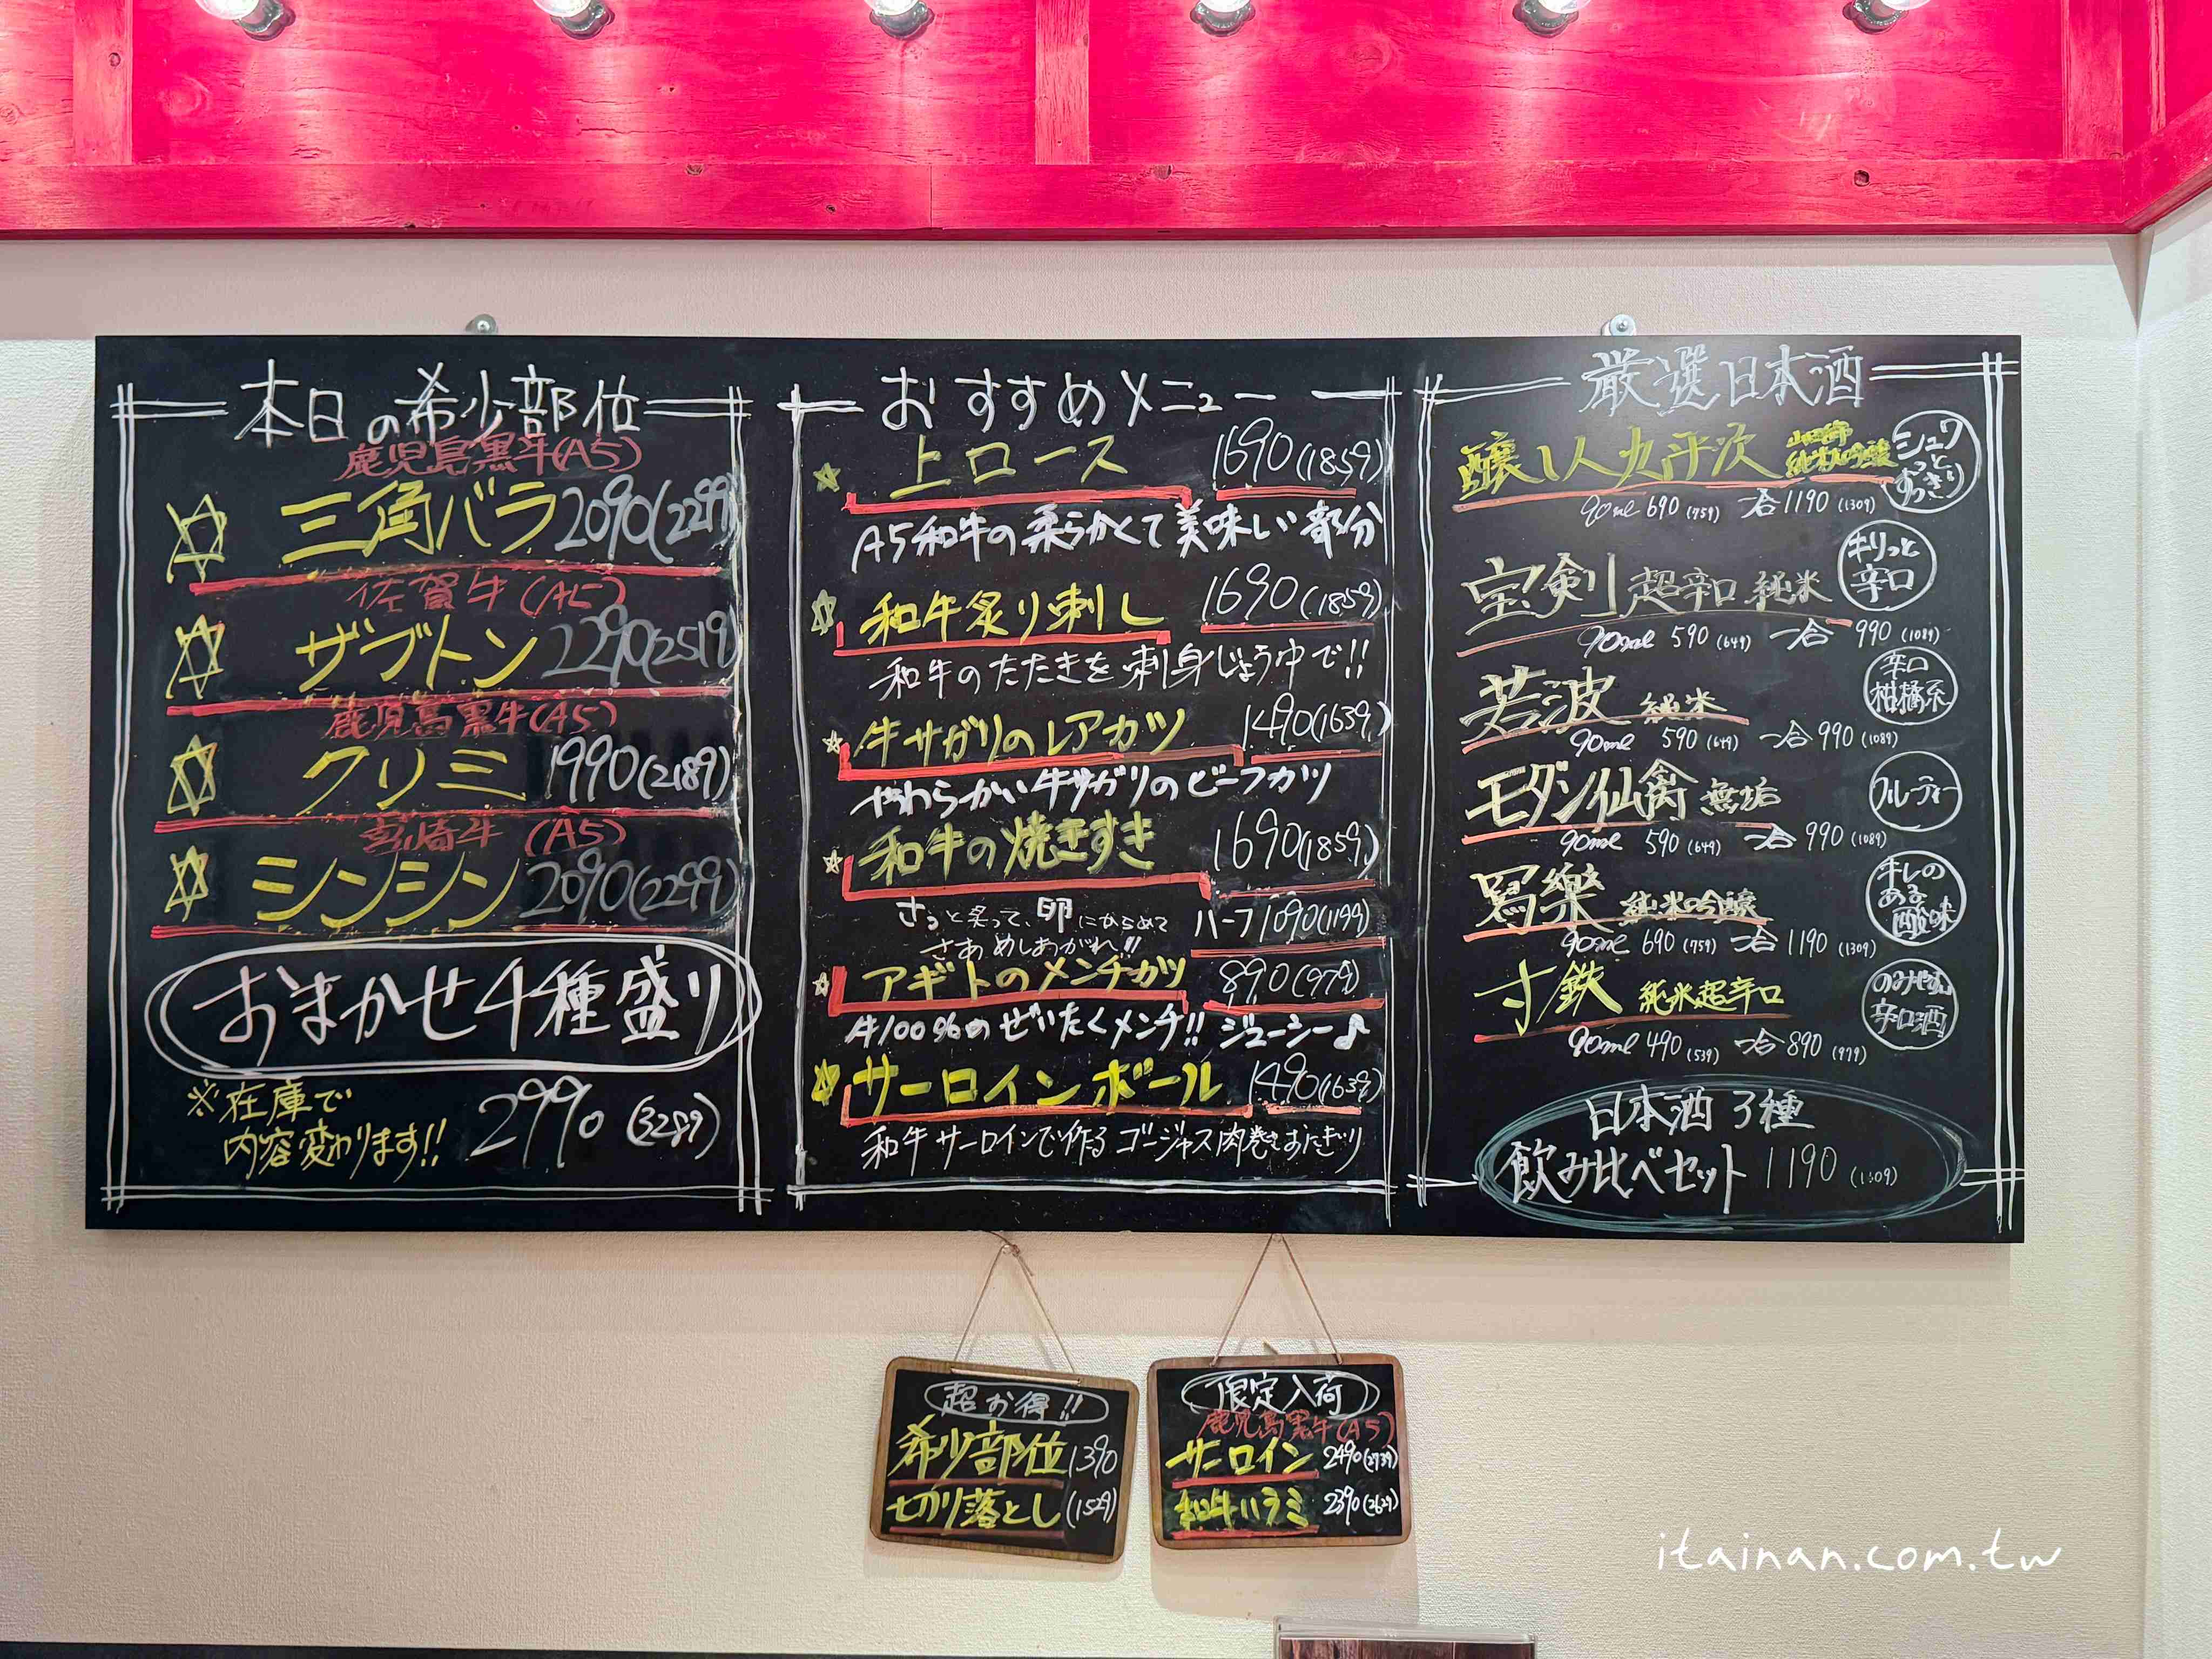 本日の希少部位
鹿児島黒牛(A5)
三角バラ 2090(2299)
佐賀牛(A5)
ザブトン 2290(2519)
鹿児島黒牛(A5)
クリミ 1990(2189)
宮崎牛(A5)
シンシン 2090(2299)
おまかせ4種盛り
※在庫で
内容変わります!! 2990 (3289)
おすすめメニュー
上ロース 1690(1859)
A5和牛の柔らかくて美味しい部分
和牛炙り刺し 1690(1859)
和牛のたたきを刺身じょう中で!!
牛サガリのレアカツ 1490(1639)
やわらかい牛サガリのビーフカツ
和牛の焼きすき 1690(1859)
さっと炙って、卵にからめて ハーフ1090(1199)
さあめしあがれ!!
アギトのメンチカツ 890(979)
牛100%のぜいたくメンチ!! ジューシー♪
サーロインボール 1490(1639)
和牛サーロインで作るゴージャス肉巻きおにぎり
厳選日本酒
醸し人九平次 山田錦 純米大吟醸 シュワっとすっきり
90ml 690(759) 一合1190(1309)
宝剣 超辛口 純米 キリっと辛口
90ml 590(649) 一合 990(1089)
若波 純米 辛口柑橘系
90ml 590(649) 一合990(1089)
モダン仙禽 無垢 フルーティー
90ml 590(649) 一合 990(1089)
寫樂 純米吟醸 キレのある酸味
90ml 690(759) 一合1190(1309)
寸鉄 純米超辛口 のみやすい辛口酒
90ml 490(539) 一合890(979)
日本酒3種
飲み比べセット 1190(1309)
超お得!!
希少部位 1390
切り落とし (1529)
限定入荷
鹿児島黒牛(A5)
サーロイン 2490(2739)
和牛ハラミ 2390(2629)
itainan.com.tw